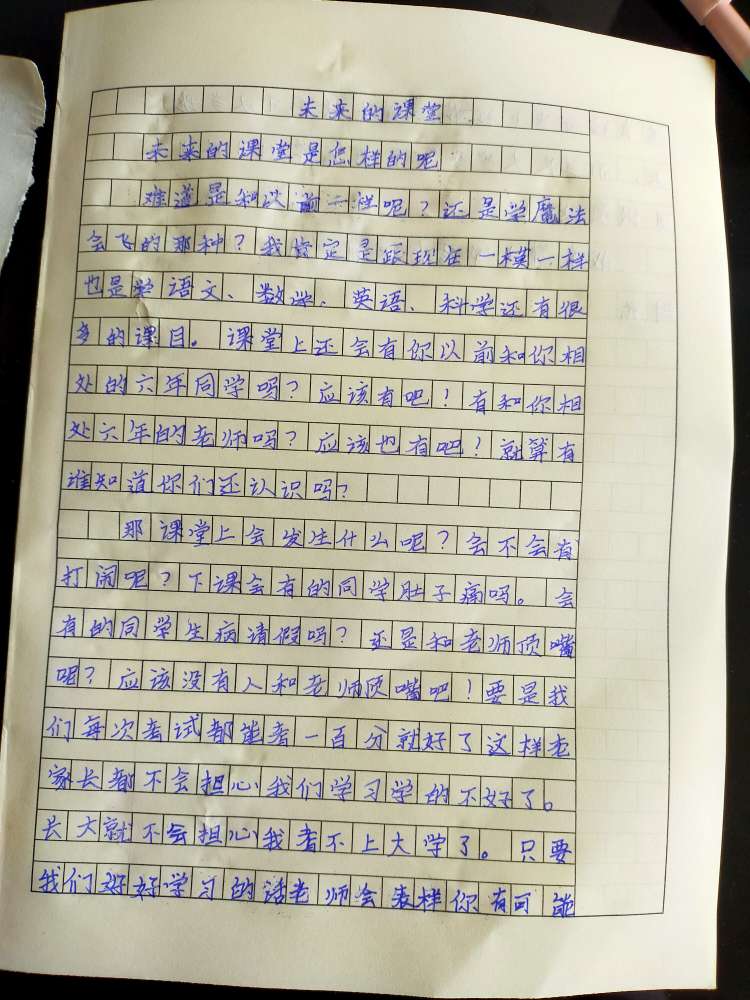 未来的课堂
未来的课堂是怎样的呢
难道是和以前一样呢？还是学魔法
会飞的那种？我肯定是跟现在一模一样
也是学语文、数学、英语、科学还有很
多的课目。课堂上还会有你以前和你相
处的六年同学吗？应该有吧！有和你相
处六年的老师吗？应该也有吧！就算有
谁知道你们还认识吗？
那课堂上会发生什么呢？会不会有
打闹呢？下课会有的同学肚子痛吗。会
有的同学生病请假吗？还是和老师顶嘴
呢？应该没有人和老师顶嘴吧！要是我
们每次考试都能考一百分就好了这样老
家长都不会担心我们学习学的不好了。
长大就不会担心我考不上大学了。只要
我们好好学习的话老师会表样你有可能